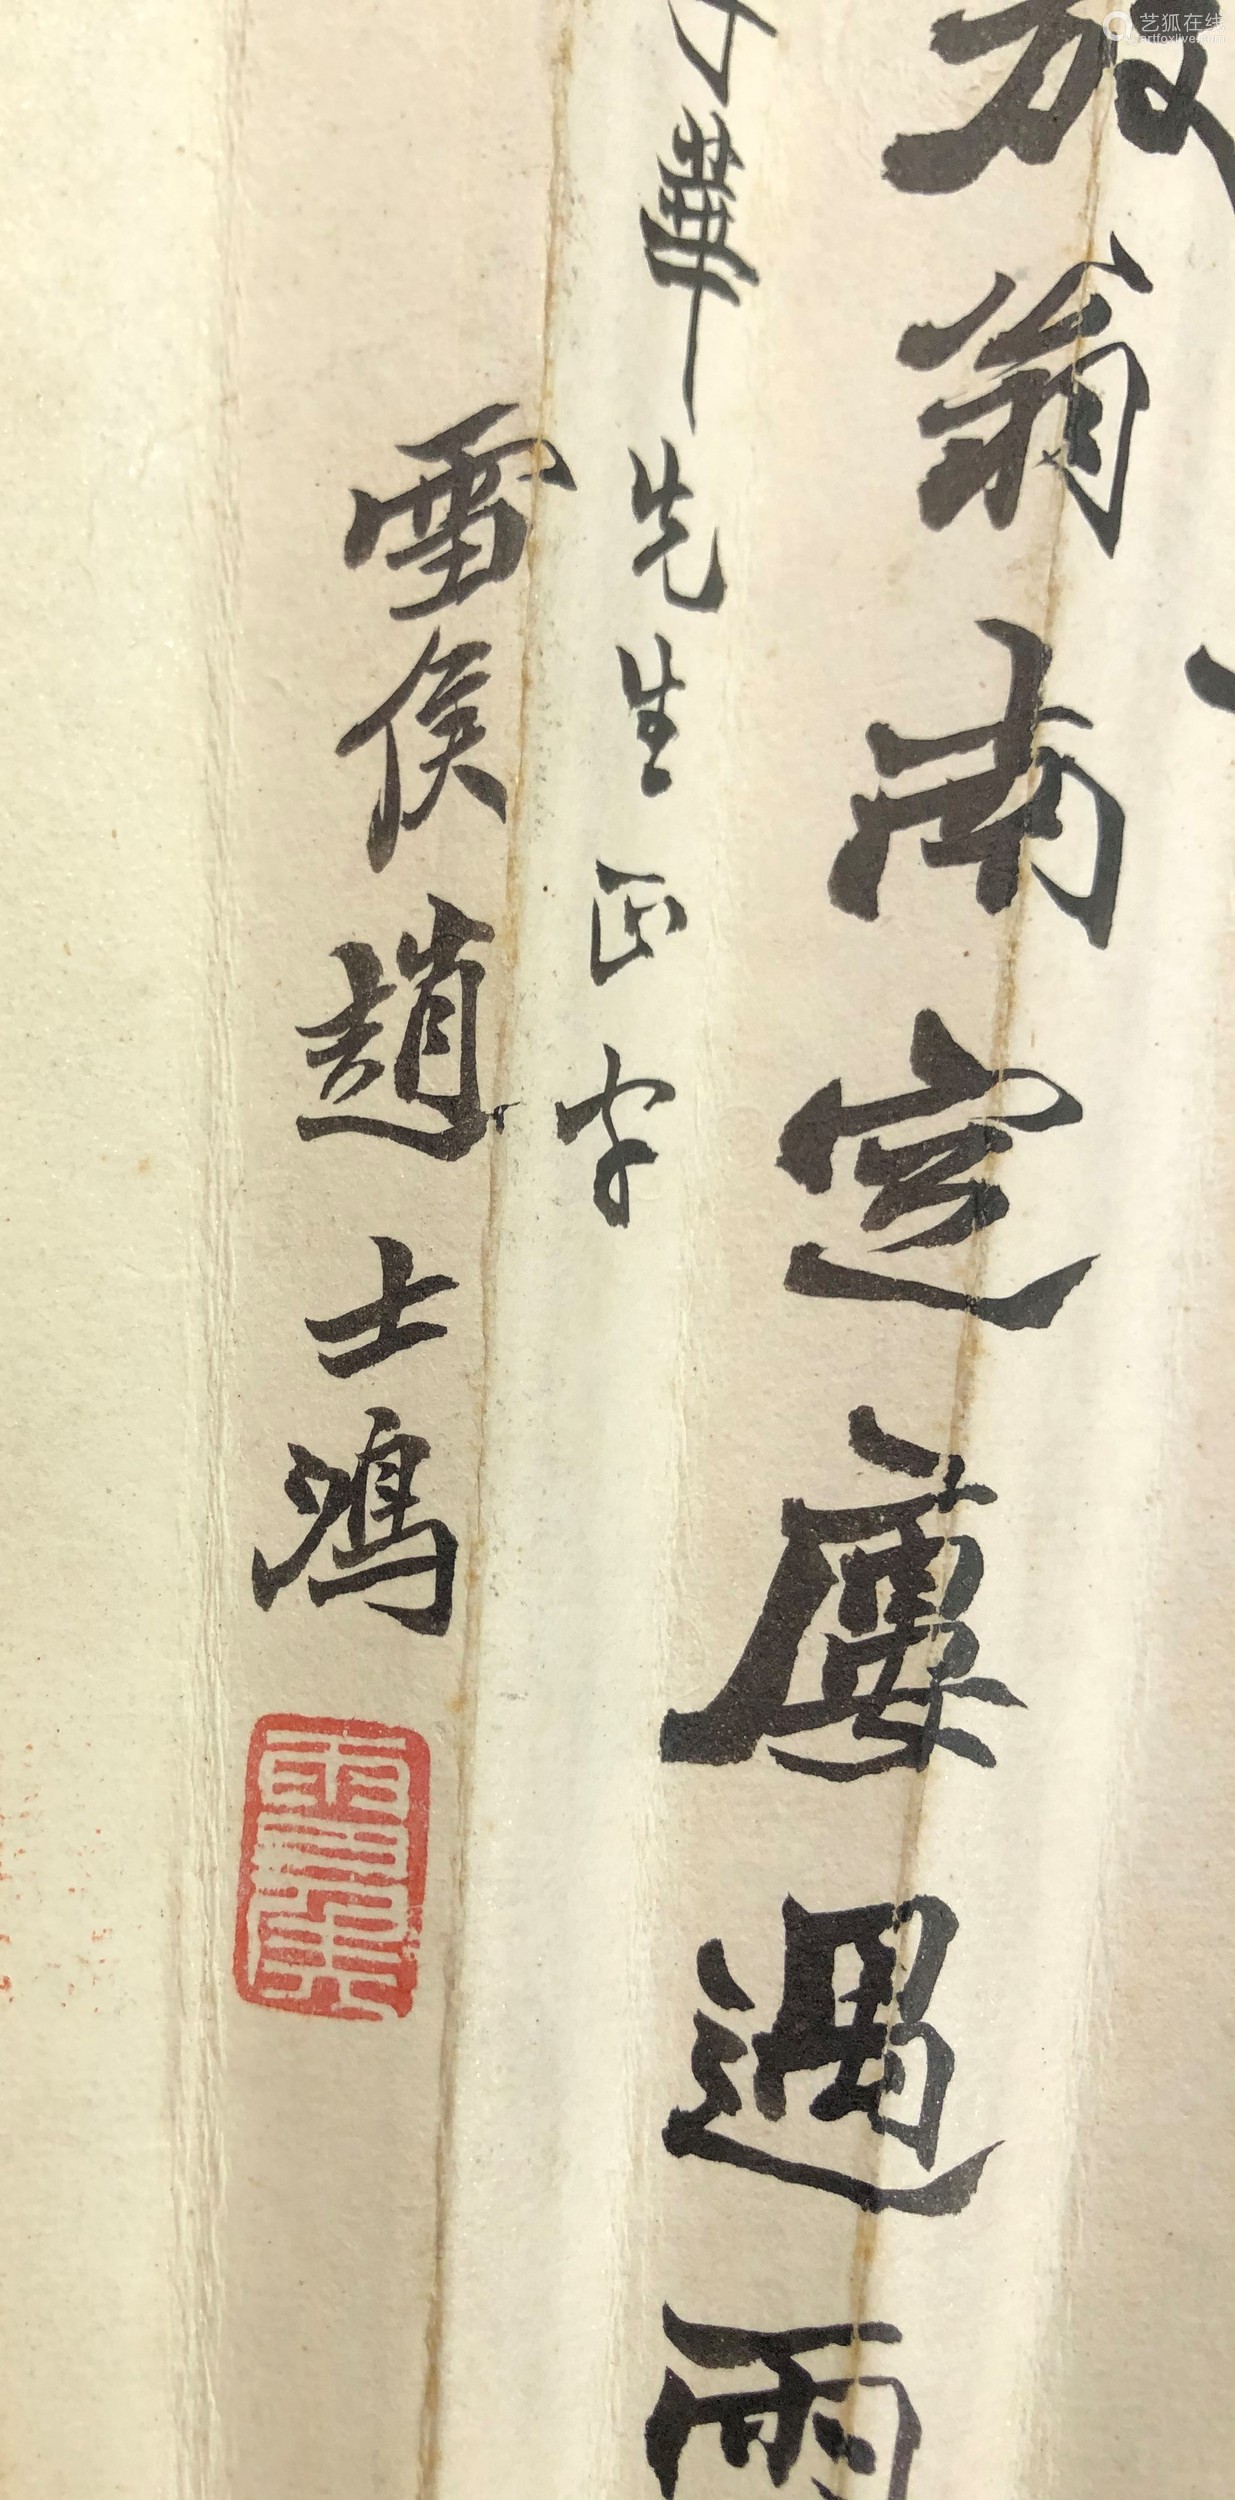 放翁南定廔遇雨
華先生正字
雪侯趙士鴻
雪侯
艺狐在线
artfoxlive.com